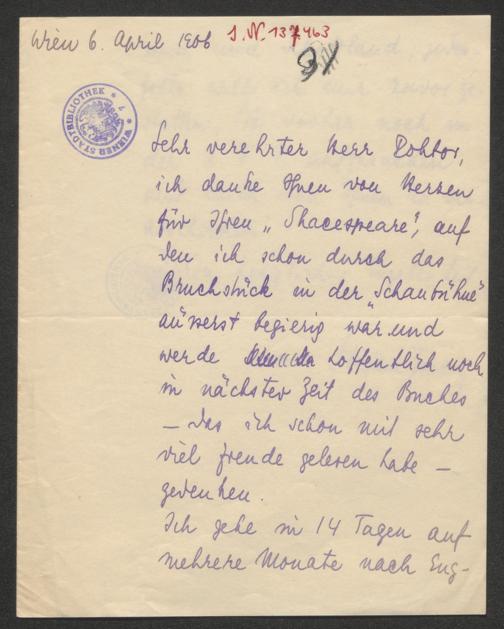 Wien 6. April 1906
I.N. 137463
WIENER STADTBIBLIOTHEK
Sehr verehrter Herr Doktor,
ich danke Ihnen von Herzen
für Ihren „Shacespeare", auf
den ich schon durch das
Bruchstück in der „Schaubühne"
äußerst begierig war und
werde hoffentlich noch
in nächster Zeit des Buches
— das ich schon mit sehr
viel Freude gelesen habe —
gedenken.
Ich gehe in 14 Tagen auf
mehrere Monate nach Eng-